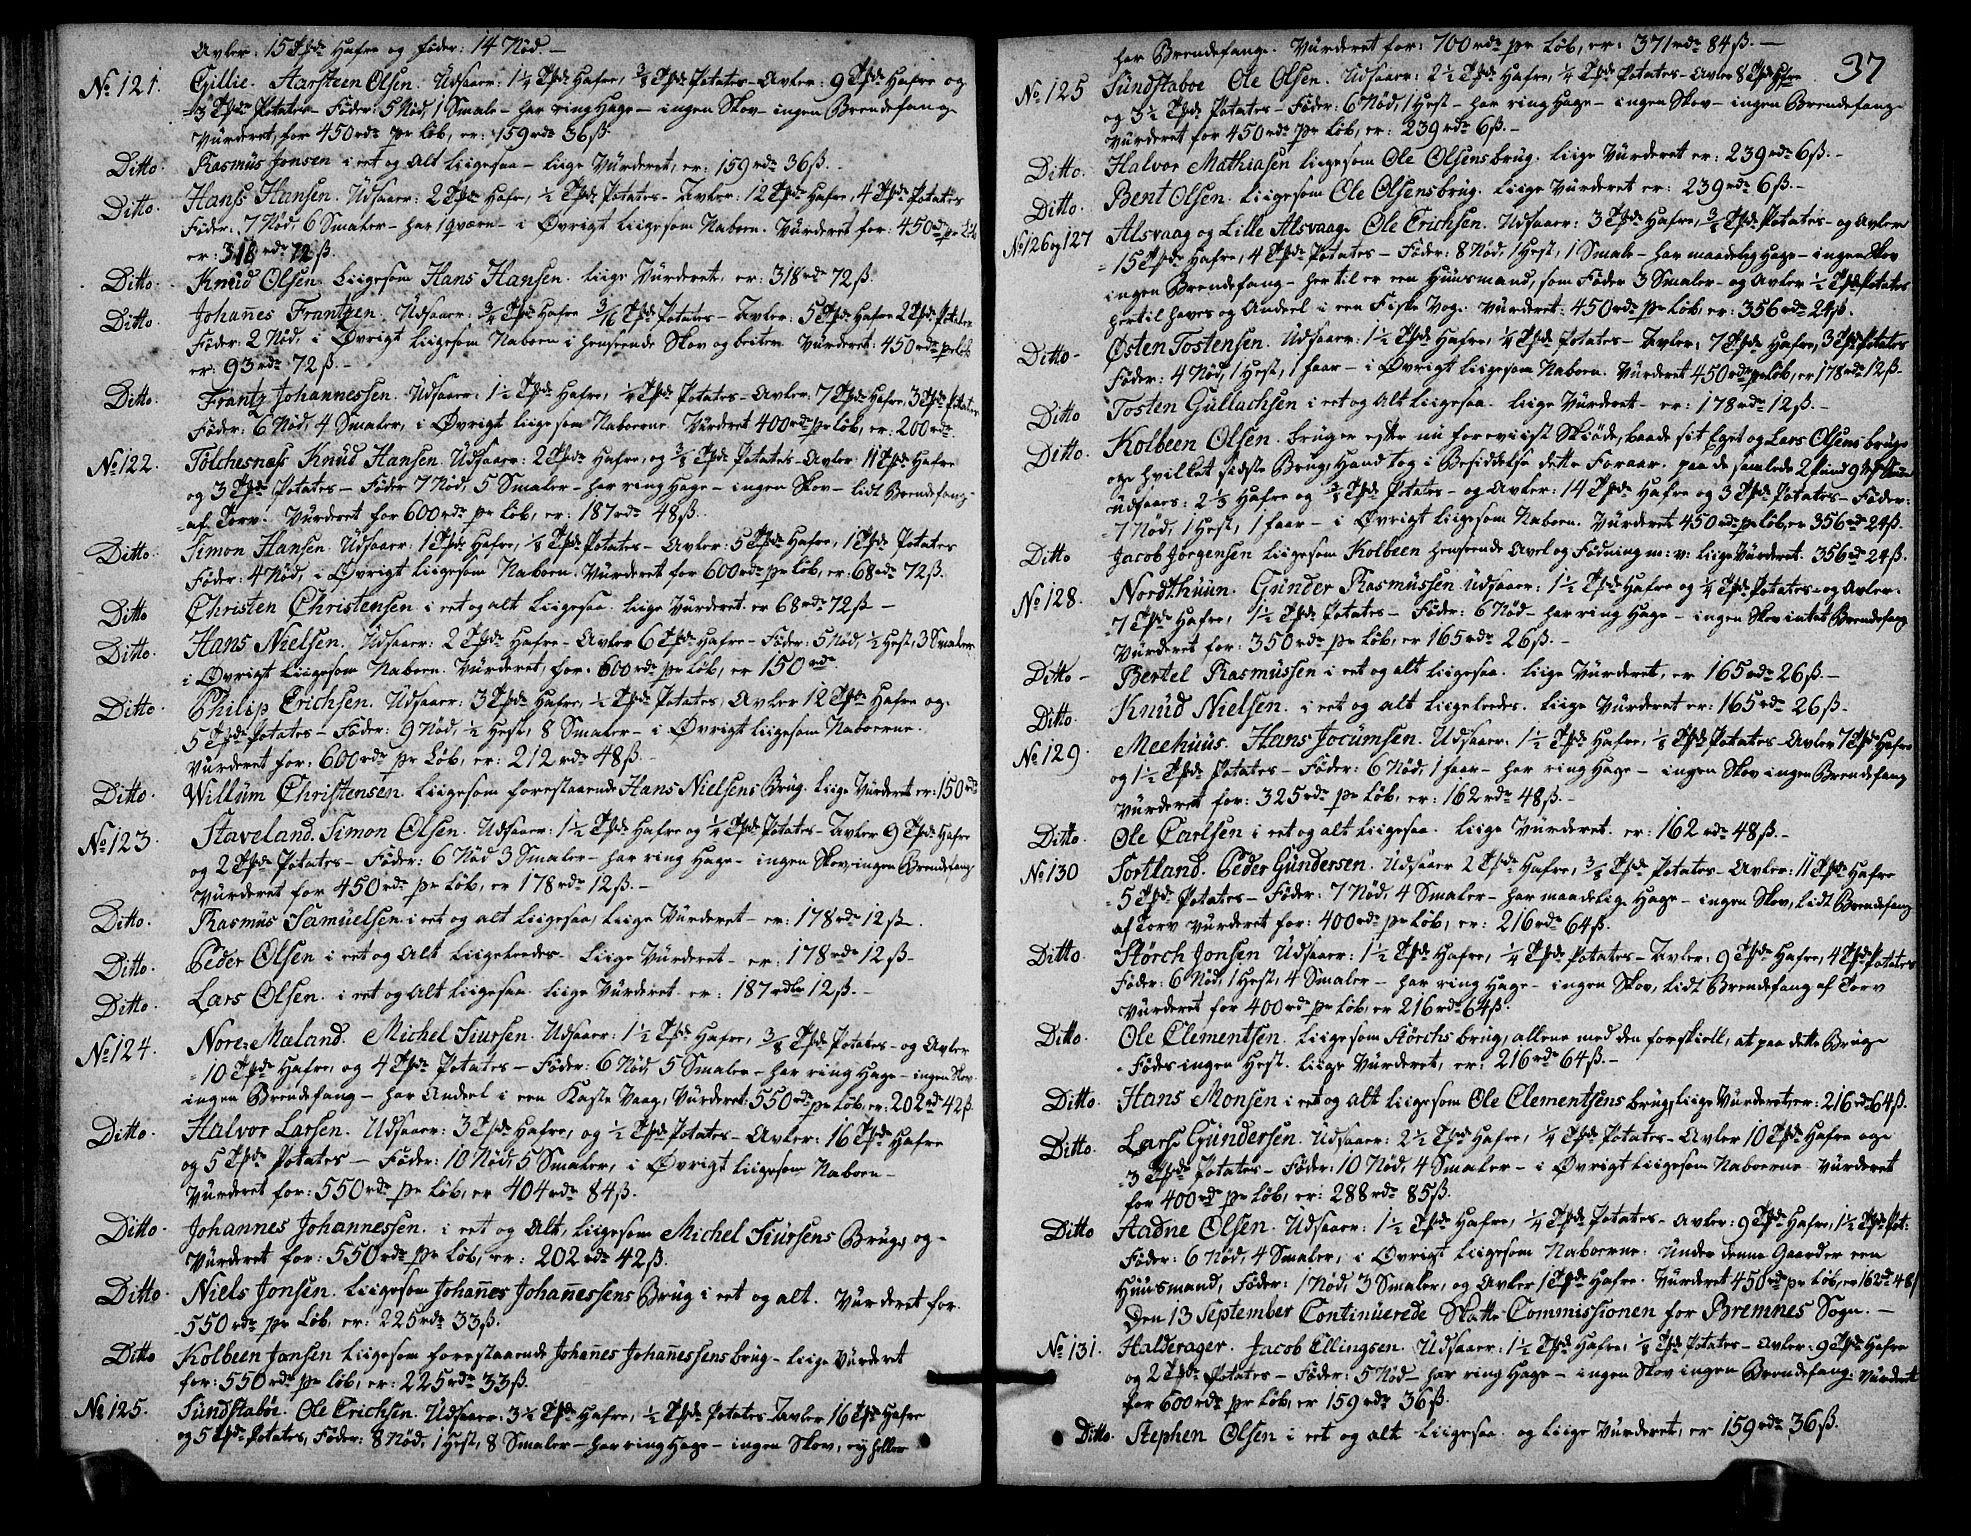 Avler: 15 Tynder Hafre og föder: 14 Nöd. —
No 121. Gillie. Aarsteen Olsen. Udsaaer: 1½ Tde Hafre, ¾ Tde Potates – Avler: 9 Tde Hafre og
3 Tde Potates – Föder: 5 Nöd, 1 Smale – har ring Hage – ingen Skov – ingen Brendefang –
Vürderet for 450 rdr pr Löb, er: 159 rdr 36 ß.
Ditto. Rasmüs Jonsen i eet og Alt liigesaa – liige Vürderet, er: 159 rdr 36 ß. –
Ditto. Hans Hansen. Udsaaer: 2 Tde Hafre, ½ Tde Potates – Avler: 12 Tde Hafre, 4 Tde Potates
Föder: 7 Nöd, 6 Smaler – har 1 qværn – i Övrigt liigesom Naboen. Vürderet for: 450 rdr pr Löb
er: 318 rdr 72 ß.
Ditto. Knüd Olsen. Liigesom Hans Hansen. liige Vürderet, er: 318 rdr 72 ß.
Ditto Johan̄es Frantzen. Udsaaer: ¾ Tde Hafre 3/16 Tde Potates – Avler: 5 Tde Hafre 2 Tde Potates
Föder: 2 Nöd, i Övrigt liigesom Naboen i henseende Skov og beiter Vürderet: 450 rdr pr Löb
er: 93 rdr 72 ß. –
Ditto. Frantz Johannessen. Udsaaer: 1½ Tde Hafre, ¼ Tde Potates – Avler: 7 Tde Hafre, 3 Tde Potates
Föder: 6 Nöd, 4 Smaler, i Övrigt liigesom Naboerne. Vürderet 400 rdr pr Löb, er: 200 rdr.
No 122. Tölchesnæss Knüd Hansen. Udsaaer: 2 Tde Hafre, og 3/8 Tde Potates – Avler: 11 Tde Hafre
og 3 Tde Potates – Föder 7 Nöd, 5 Smaler – har ring Hage – ingen Skov – lidt Brendefang –
af Torv. Vürderet for 600 rdr pr Löb, er: 187 rdr 48 ß.
Ditto. Simon Hansen. Udsaaer: 1 Tde Hafre, 1/8 Tde Potates – Avler: 5 Tde Hafre, 1 Tde Potates
Föder: 4 Nöd, i Övrigt liigesom Naboen. Vürderet for 600 rdr pr Löb, er: 68 rdr 72 ß.
Ditto Christen Christensen i eet og alt liigesaa. liige Vürderet er 68 rdr 72 ß –
Ditto. Hans Nielsen. Udsaaer: 2 Tde Hafre – Avler 6 Tde Hafre – Föder: 5 Nöd, ½ Hest, 3 Smaler
i Övrigt liigesom Naboen. Vürderet, for: 600 rdr pr Löb, er 150 rdr
Ditto. Philip Erichsen. Udsaaer: 3 Tde Hafre, ½ Tde Potates, Avler 12 Tde Hafre og
5 Tde Potates – Föder: 9 Nöd, ½ Hest, 8 Smaler – i Övrigt liigesom Naboerne.
Vürderet for: 600 rdr pr Löb, er: 212 rdr 48 ß. –
Ditto. Willüm Christensen. liigesom forestaaende Hans Nielsens Brüg. liige Vürderet er: 150 rdr
No 123. Staveland. Simon Olsen. Udsaaer: 1½ Tde Hafre og ¼ Tde Potates – Avler 9 Tde Hafre
og 2 Tde Potates – Föder: 6 Nöd 3 Smaler – har ring Hage – ingen Skov, ingen Brendefang
Vürderet for 450 rdr pr Löb, er 178 rdr 12 ß. –
Ditto. Rasmüs Samüelsen. i eet og alt liigesaa, liige Vürderet – er: 178 rdr 12 ß.
Ditto. Peder Olsen i eet og Alt liigeledes – liige Vürderet – er: 178 rdr 12 ß –
Ditto. Lars Olsen. i eet og Alt liigesaa. liige Vürderet. er: 187 rdlr 12 ß. –
No 124. Nore-Mæland. Michel Siursen. Udsaaer: 1½ Tde Hafre, 3/8 Tde Potates – og Avler
10 Tde Hafre, og 4 Tde Potates – Föder: 6 Nöd, 5 Smaler – har ring Hage – ingen Skov
ingen Brendefang – har Andeel i een Kaste Vaag, Vürderet: 550 rdr pr Löb, er: 202 rdr 42 ß.
Ditto. Halvor Larsen. Udsaaer: 3 Tde Hafre, og ½ Tde Potates – Avler: 16 Tde Hafre
og 5 Tde Potates – Föder: 10 Nöd, 5 Smaler, i Övrigt liigesom Naboen –
Vürderet for: 550 rdr pr Löb, er 404 rdr 84 ß.
Ditto. Johannes Johannessen. i eet og Alt, liigesom Michel Siürsens Brüg, og –
Vürderet for: 550 rdr pr Löb, er: 202 rdr 42 ß.
Ditto. Niels Jonsen. liigesom Johan̄es Johan̄essens Brüg i eet og alt. Vürderet for.
550 rdr pr Löb, er: 225 rdr 33 ß.
Ditto Kolbeen Jansen liigesom forestaaende Johan̄es Johan̄essens brüg – liige Vürderet
for: 550 rdr pr Löb, er: 225 rdr 33 ß.
No 125. Sündstaböe. Ole Erichsen. Udsaaer: 3½ Tde Hafre, ½ Tde Potates Avler 16 Tde Hafre
og 5 Tde Potates, Föder: 8 Nöd, 1 Hest, 8 Smaler – har ring Hage – ingen Skov, ey heller
37
har Brendefang. Vürderet for: 700 rdr pr Löb, er: 371 rdr 84 ß. –
No 125 Sündstaboe Ole Olsen. Udsaaer: 2½ Tde Hafre, ¼ Tde Potates – Avler 8 Tde Hafre
og 3½ Tde Potates – Föder: 6 Nöd, 1 Hest – har ring Hage – ingen Skov – ingen Brendefang –
Vürderet for 450 rdr pr Löb, er: 239 rdr 6 ß. –
Ditto. Halvor Mathiasen liigesom Ole Olsens brüg. liige Vürderet er: 239 rdr 6 ß. –
Ditto. Bent Olsen. liigesom Ole Olsens brüg. liige Vürderet er: 239 rdr 6 ß. –
No 126 og 127 Alsvaag og Lille Alsvaag. Ole Erichsen. Udsaaer: 3 Tde Hafre, ¾ Tde Potates – og Avler
15 Tde Hafre, 4 Tde Potates – Föder: 8 Nöd, 1 Hest, 1 Smale – har maadelig Hage – ingen Skov
ingen Brendefang – hertil er een Huusmand, som Föder 3 Smaler – og Avler ½ Tde Potates
hertil haves og Andeel i een Fiske Vog. Vürderet: 450 rdr pr Löb, er: 356 rdr 24 ß.
Ditto – Østen Tostensen. Udsaaer: 1½ Tde Hafre, ¼ Tde Potates – Avler: 7 Tde Hafre, 3 Tde Potates
Föder: 4 Nöd, 1 Hest, 1 faar – i Övrigt liigesom Naboen. Vürderet 450 rdr pr Löb, er 178 rdr 12 ß.
Ditto Tosten Güllachsen i eet og Alt liigesaa. liige Vürderet – er: 178 rdr 12 ß. –
Ditto. Kolbeen Olsen. bruger efter nu foreviist Skiöde, baade sit Eget og Lars Olsens brug
og hvilket sidste Brug, Hand tog i Besiddelse dette Foraar. paa de samlede 2 Pund 9
udsaaes: 2½ Hafre og 3/8 Tde Potates – og Avler: 14 Tde Hafre og 3 Tde Potates – Föder:
7 Nöd, 1 Hest, 1 faar – i Övrigt liigesom Naboen. Vürderet 450 rdr pr Löb, er 356 rdr 24 ß.
Ditto Jacob Jörgensen liigesom Kolbeen henseende Avel og Födning m: v: liige Vürderet. 356 rdr 24 ß.
No 128. Nordthuun. Günder Rasmüssen udsaaer: 1½ Tde Hafre og ¼ Tde Potates – og Avler.
7 Tde Hafre, 1½ Tde Potates – Föder: 6 Nöd – har ring Hage – ingen Skov intet Brendefang
Vürderet for: 350 rdr pr Löb, er 165 rdr 26 ß. –
Ditto – Bertel Rasmüssen i eet og alt liigesaa. liige Vürderet, er 165 rdr 26 ß. –
Ditto. Knüd Nielsen. i eet og alt liigeledes. liige Vürderet er: 165 rdr 26 ß. –
No 129. Meehuus. Hans Jocumsen. Udsaaer: 1½ Tde Hafre, 1/8 Tde Potates – Avler 7 Tde Hafre
og 1½ Tde Potates – Föder: 6 Nöd, 1 faar – har ring Hage – ingen Skov ingen Brendefang
Vürderet for: 325 rdr pr Löb, er: 162 rdr 48 ß. –
Ditto. Ole Carlsen i eet og alt liigesaa. liige Vürderet. er: 162 rdr 48 ß. –
No 130 Fortland. Peder Gündersen. Udsaaer 2 Tde Hafre, 3/8 Tde Potates – Avler: 11 Tde Hafre
5 Tde Potates – Föder: 7 Nöd, 4 Smaler – har maadelig Hage – ingen Skov, lidt Brendefang
af Torv Vürderet for: 400 rdr pr Löb, er: 216 rdr 64 ß.
Ditto. Störch Jonsen Udsaaer: 1½ Tde Hafre, ¼ Tde Potates – Avler: 9 Tde Hafre, 4 Tde Potates
Föder: 6 Nöd, 1 Hest, 4 Smaler – har ring Hage – ingen Skov, lidt Brendefang af Torv
Vürderet for 400 rdr pr Löb, er 216 rdr 64 ß.
Ditto. Ole Clementsen. liigesom Störchs brug, allene med den forskiell, at paa dette Brug
Födes ingen Hest. liige Vürderet, er: 216 rdr 64 ß. –
Ditto. Hans Monsen i eet og alt liigesom Ole Clementsens brug, liige Vurderet, er: 216 rdr 64 ß.
Ditto. Lars Gündersen. Udsaaer: 2½ Tde Hafre, ¼ Tde Potates – Avler 10 Tde Hafre og
3 Tde Potates – Föder: 10 Nöd, 4 Smaler – i Övrigt liigesom Naboerne. Vürderet
for 400 rdr pr Löb, er: 288 rdr 85 ß.
Ditto Aadne Olsen. Udsaaer: 1½ Tde Hafre, ¼ Tde Potates – Avler: 9 Tde Hafre, 1½ Tde Pot:
Föder: 6 Nöd, 4 Smaler, i Övrigt liigesom Naboerne. Under denne Gaard er een
Huusmand, Föder: 1 Nöd, 3 Smaler, og Avler 1 Tde Hafre. Vürderet 450 rdr pr Löb, er 162 rdr 48 ß
Den 13 September Continuerede Skatte-Commissionen for Bremnes Sogn. –
No 131. Halderager. Jacob Ellingsen. Udsaaer: 1½ Tde Hafre, 1/8 Tde Potates – Avler: 9 Tde Hafre
og 2 Tde Potates – Föder: 5 Nöd – har ring Hage – ingen Skov ingen Brendefang: Vürderet
for 600 rdr pr Löb, er 159 rdr 36 ß.
Ditto. Stephen Olsen i eet og alt liigesaa. og liige Vürderet, er 159 rdr 36 ß.